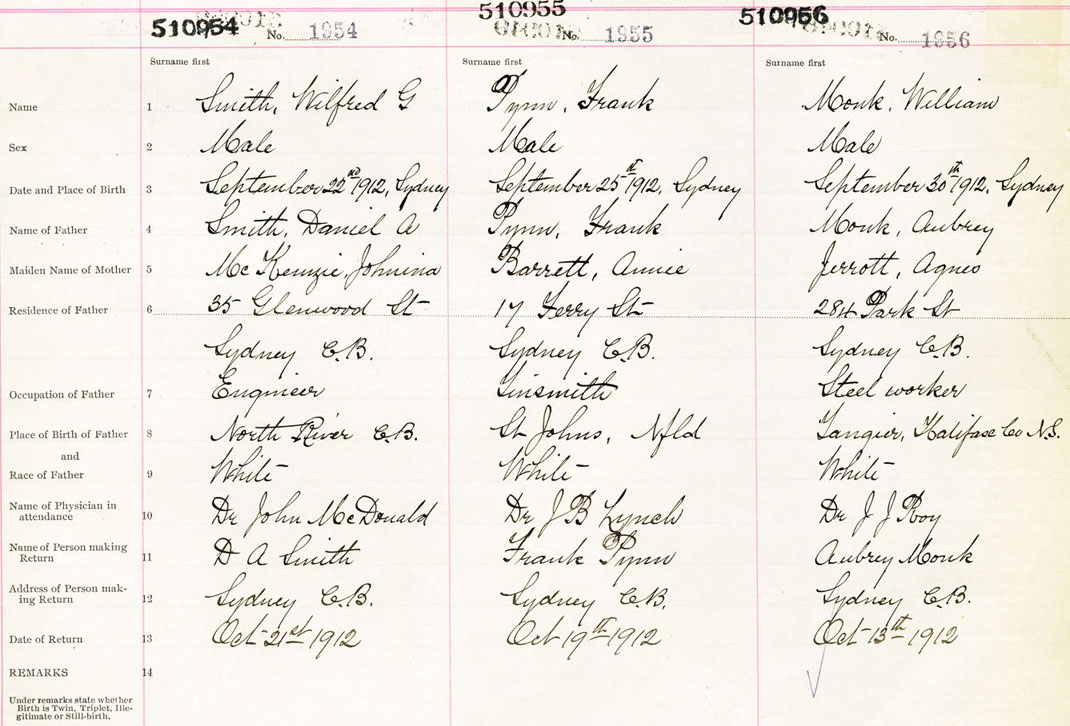 510954 No. 1954 510955 No. 1955 510956 No. 1956
Surname first Surname first Surname first
Name 1 Smith, Wilfred G Pynn, Frank Monk, William
Sex 2 Male Male Male
Date and Place of Birth 3 September 22nd 1912, Sydney September 25th 1912, Sydney September 30th 1912, Sydney
Name of Father 4 Smith, Daniel A Pynn, Frank Monk, Aubrey
Maiden Name of Mother 5 McKenzie, Johnina Barrett, Annie Jerrott, Agnes
Residence of Father 6 35 Glenwood St 17 Ferry St 284 Park St
Sydney C.B. Sydney C.B. Sydney C.B.
Occupation of Father 7 Engineer Tinsmith Steel worker
Place of Birth of Father 8 North River C.B. St Johns, Nfld Tangier, Halifax Co N.S.
and
Race of Father 9 White White White
Name of Physician in
attendance 10 Dr John McDonald Dr J B Lynch Dr J J Roy
Name of Person making
Return 11 D A Smith Frank Pynn Aubrey Monk
Address of Person mak-
ing Return 12 Sydney C.B. Sydney C.B. Sydney C.B.
Date of Return 13 Oct 21st 1912 Oct 19th 1912 Oct 13th 1912
REMARKS 14
Under remarks state whether
Birth is Twin, Triplet, Ille-
gitimate or Still-birth.